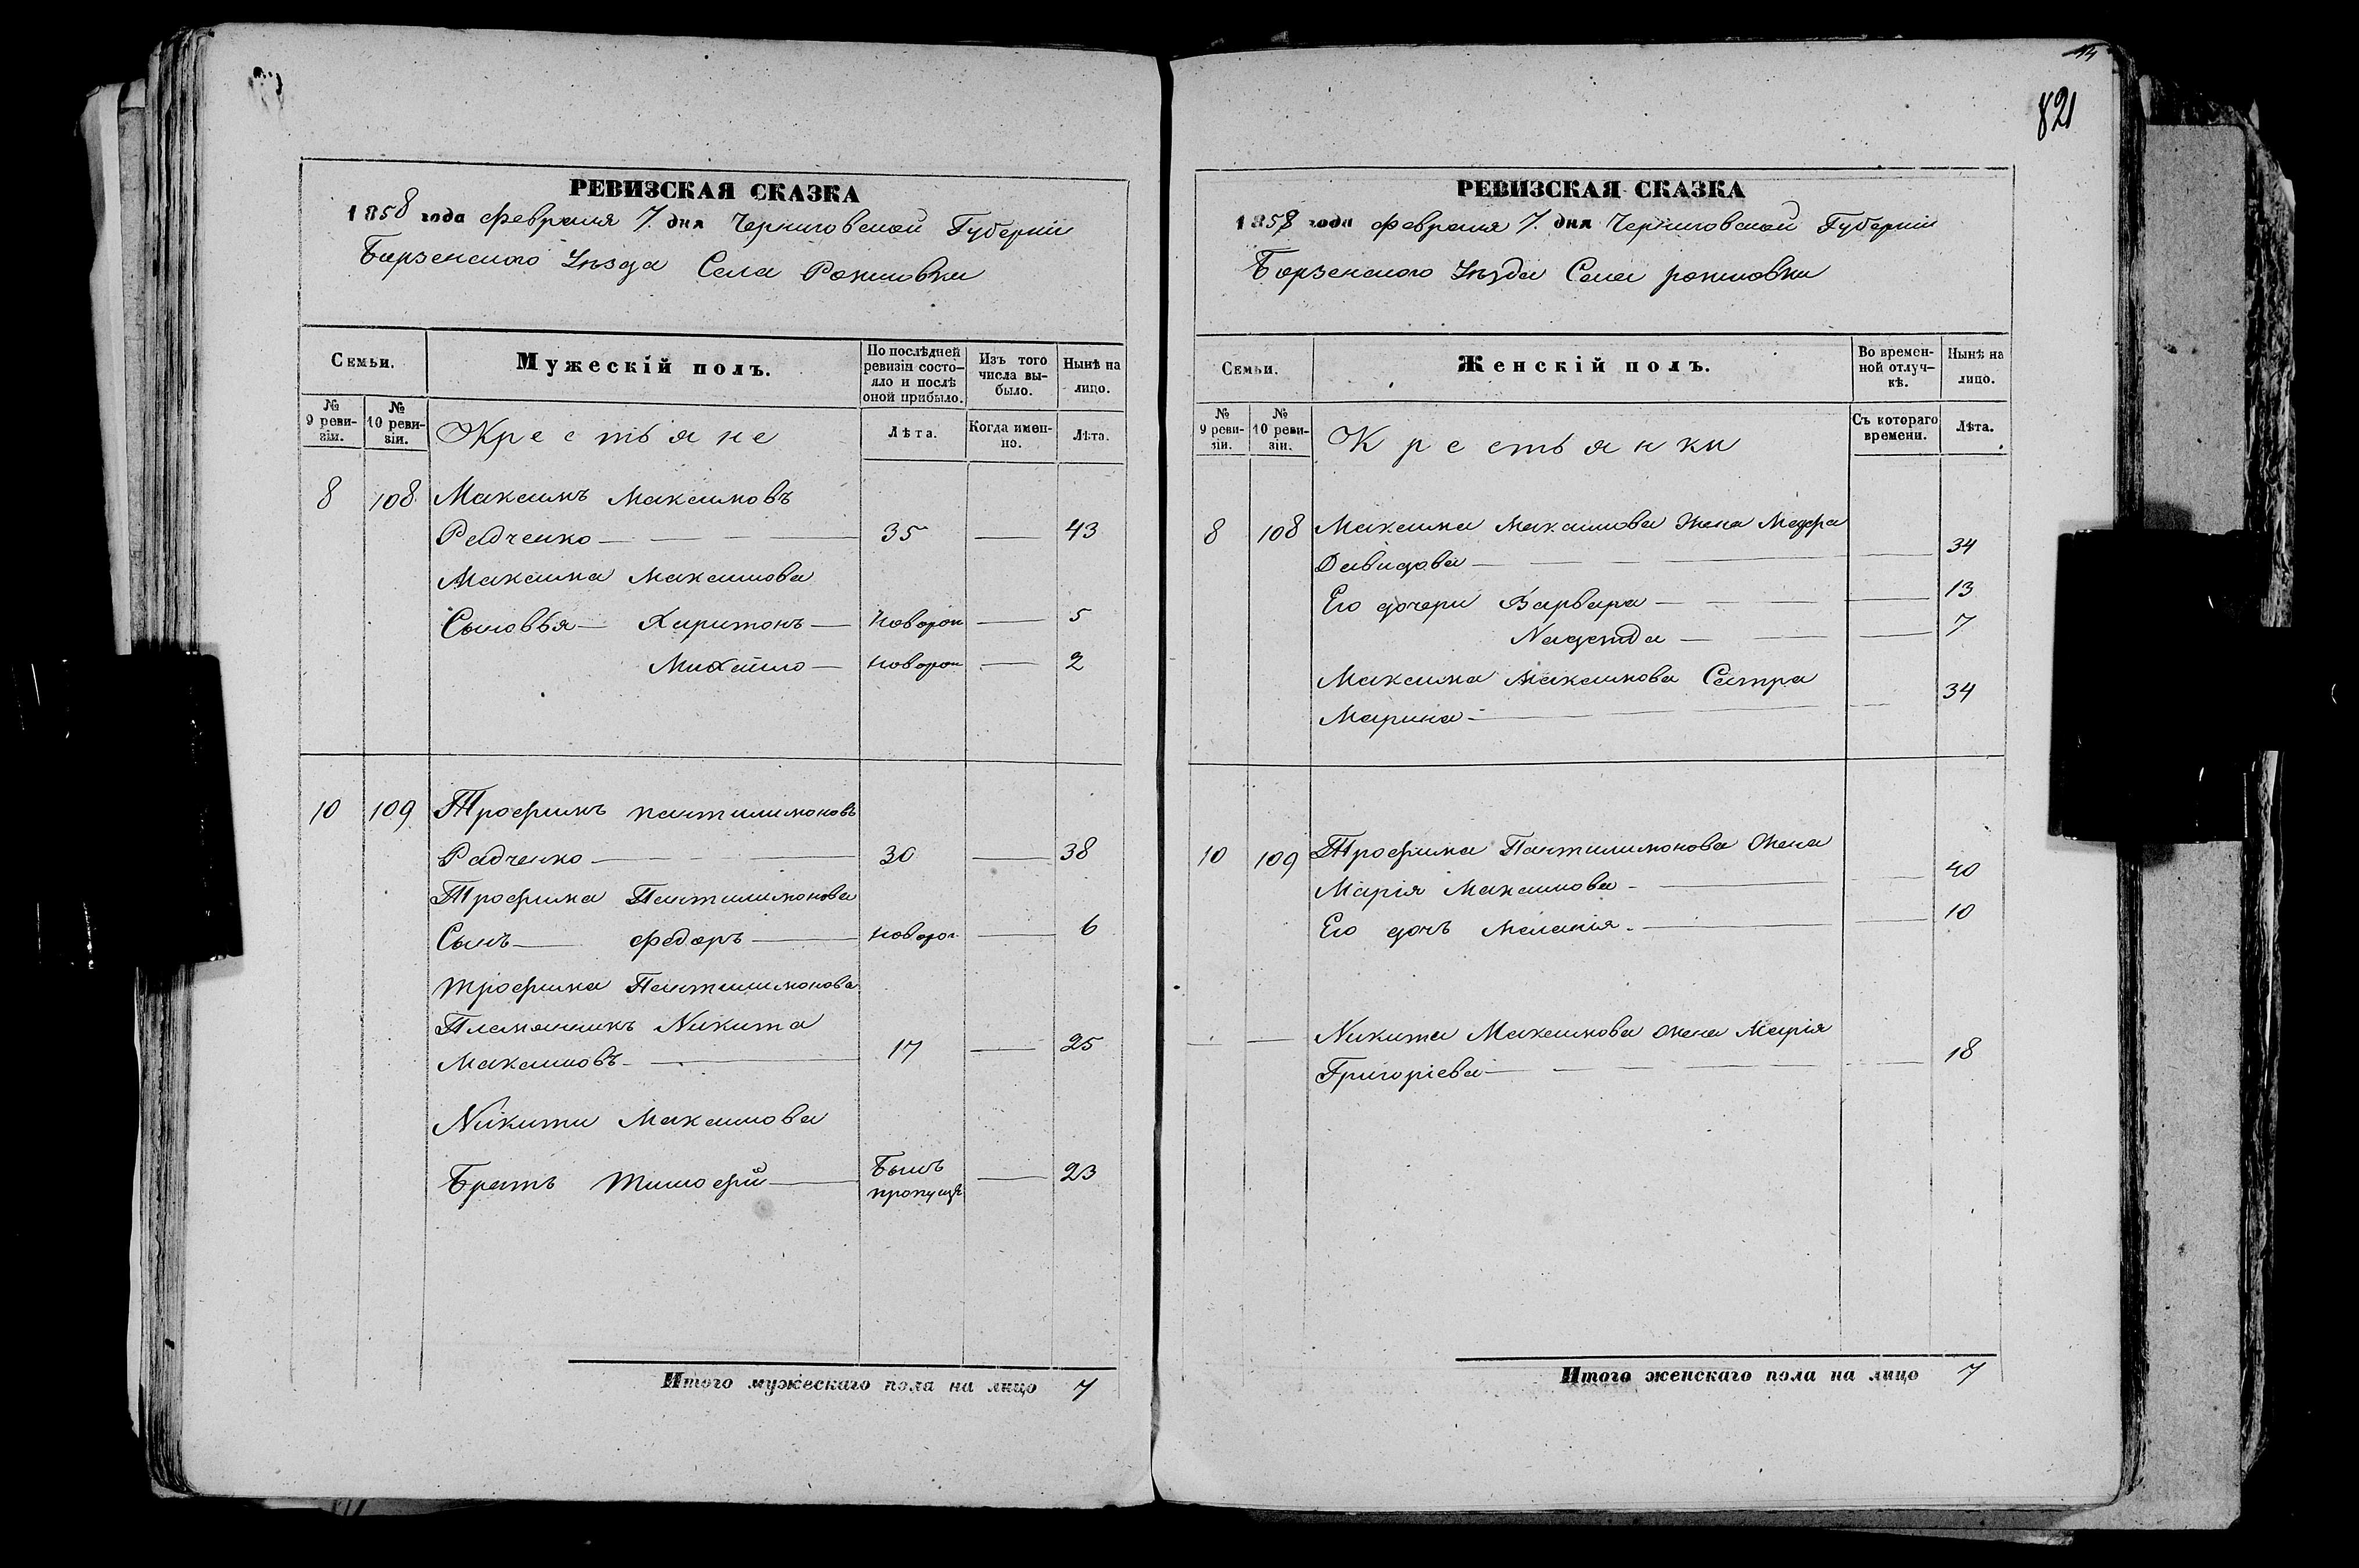 РЕВИЗСКАЯ СКАЗКА
1858 года февраля 7. дня Черниговской Губерніи
Борзенского Уѣзда Села Рожновки
Семьи.
Мужескій полъ.
По послѣдней ревизіи состо-
яло и послѣ
оной прибыло.
Изъ того
числа вы-
было.
Нынѣ на
лицо.
№
9 реви-
зіи.
№
10 реви-
зіи.
Крестьяне
Лѣта.
Когда имен-
но.
Лѣта.
8 108 Максимъ Максимовъ
Радченко — 35 — 43
Максима Максимова
Сыновья — Харитонъ — новорож — 5
Михайло — новорож — 2
10 109 Трофимъ Пантилимоновъ
Радченко — 30 — 38
Трофима Пантилимонова
Сынъ — федоръ — новорог — 6
Трофима Пантилимонова
Племянникъ Никита
Максимовъ — 17 — 25
Никиты Максимова
Братъ Тимофѣй — Былъ
пропущѣ — 23
Итого мужескаго пола на лицо 7
14
821
РЕВИЗСКАЯ СКАЗКА
1858 года февраля 7. дня Черниговской Губерніи
Борзенского Уѣзда Села рожновки
Семьи.
Женскій полъ.
Во времен-
ной отлуч-
кѣ.
Нынѣ на
лицо.
№
9 реви-
зіи.
№
10 реви-
зіи.
Крестьянки
Съ котораго
времени.
Лѣта.
8 108 Максима Максимова Жена
Давидова — 34
Его дочери Варвара — 13
Надежда — 7
Максима Максимова Сестра
Марина — 34
10 109 Трофима Пантилимонова Жена
Марія Максимова — 40
Его дочь Меланія — 10
— — Никиты Максимова жена Марія
Григоріева — 18
Итого женскаго пола на лицо 7